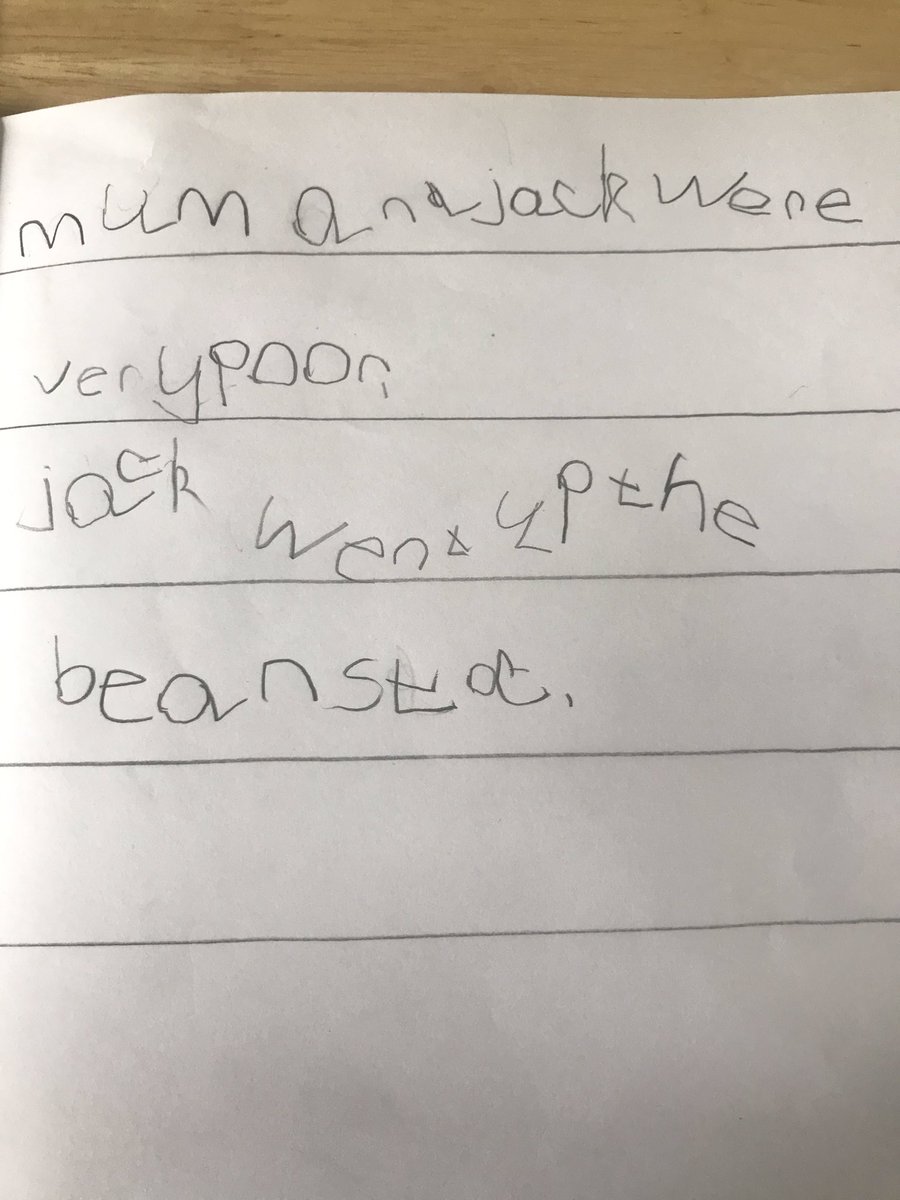 mum and jack were
very poor,
jack went up the
beanstct.